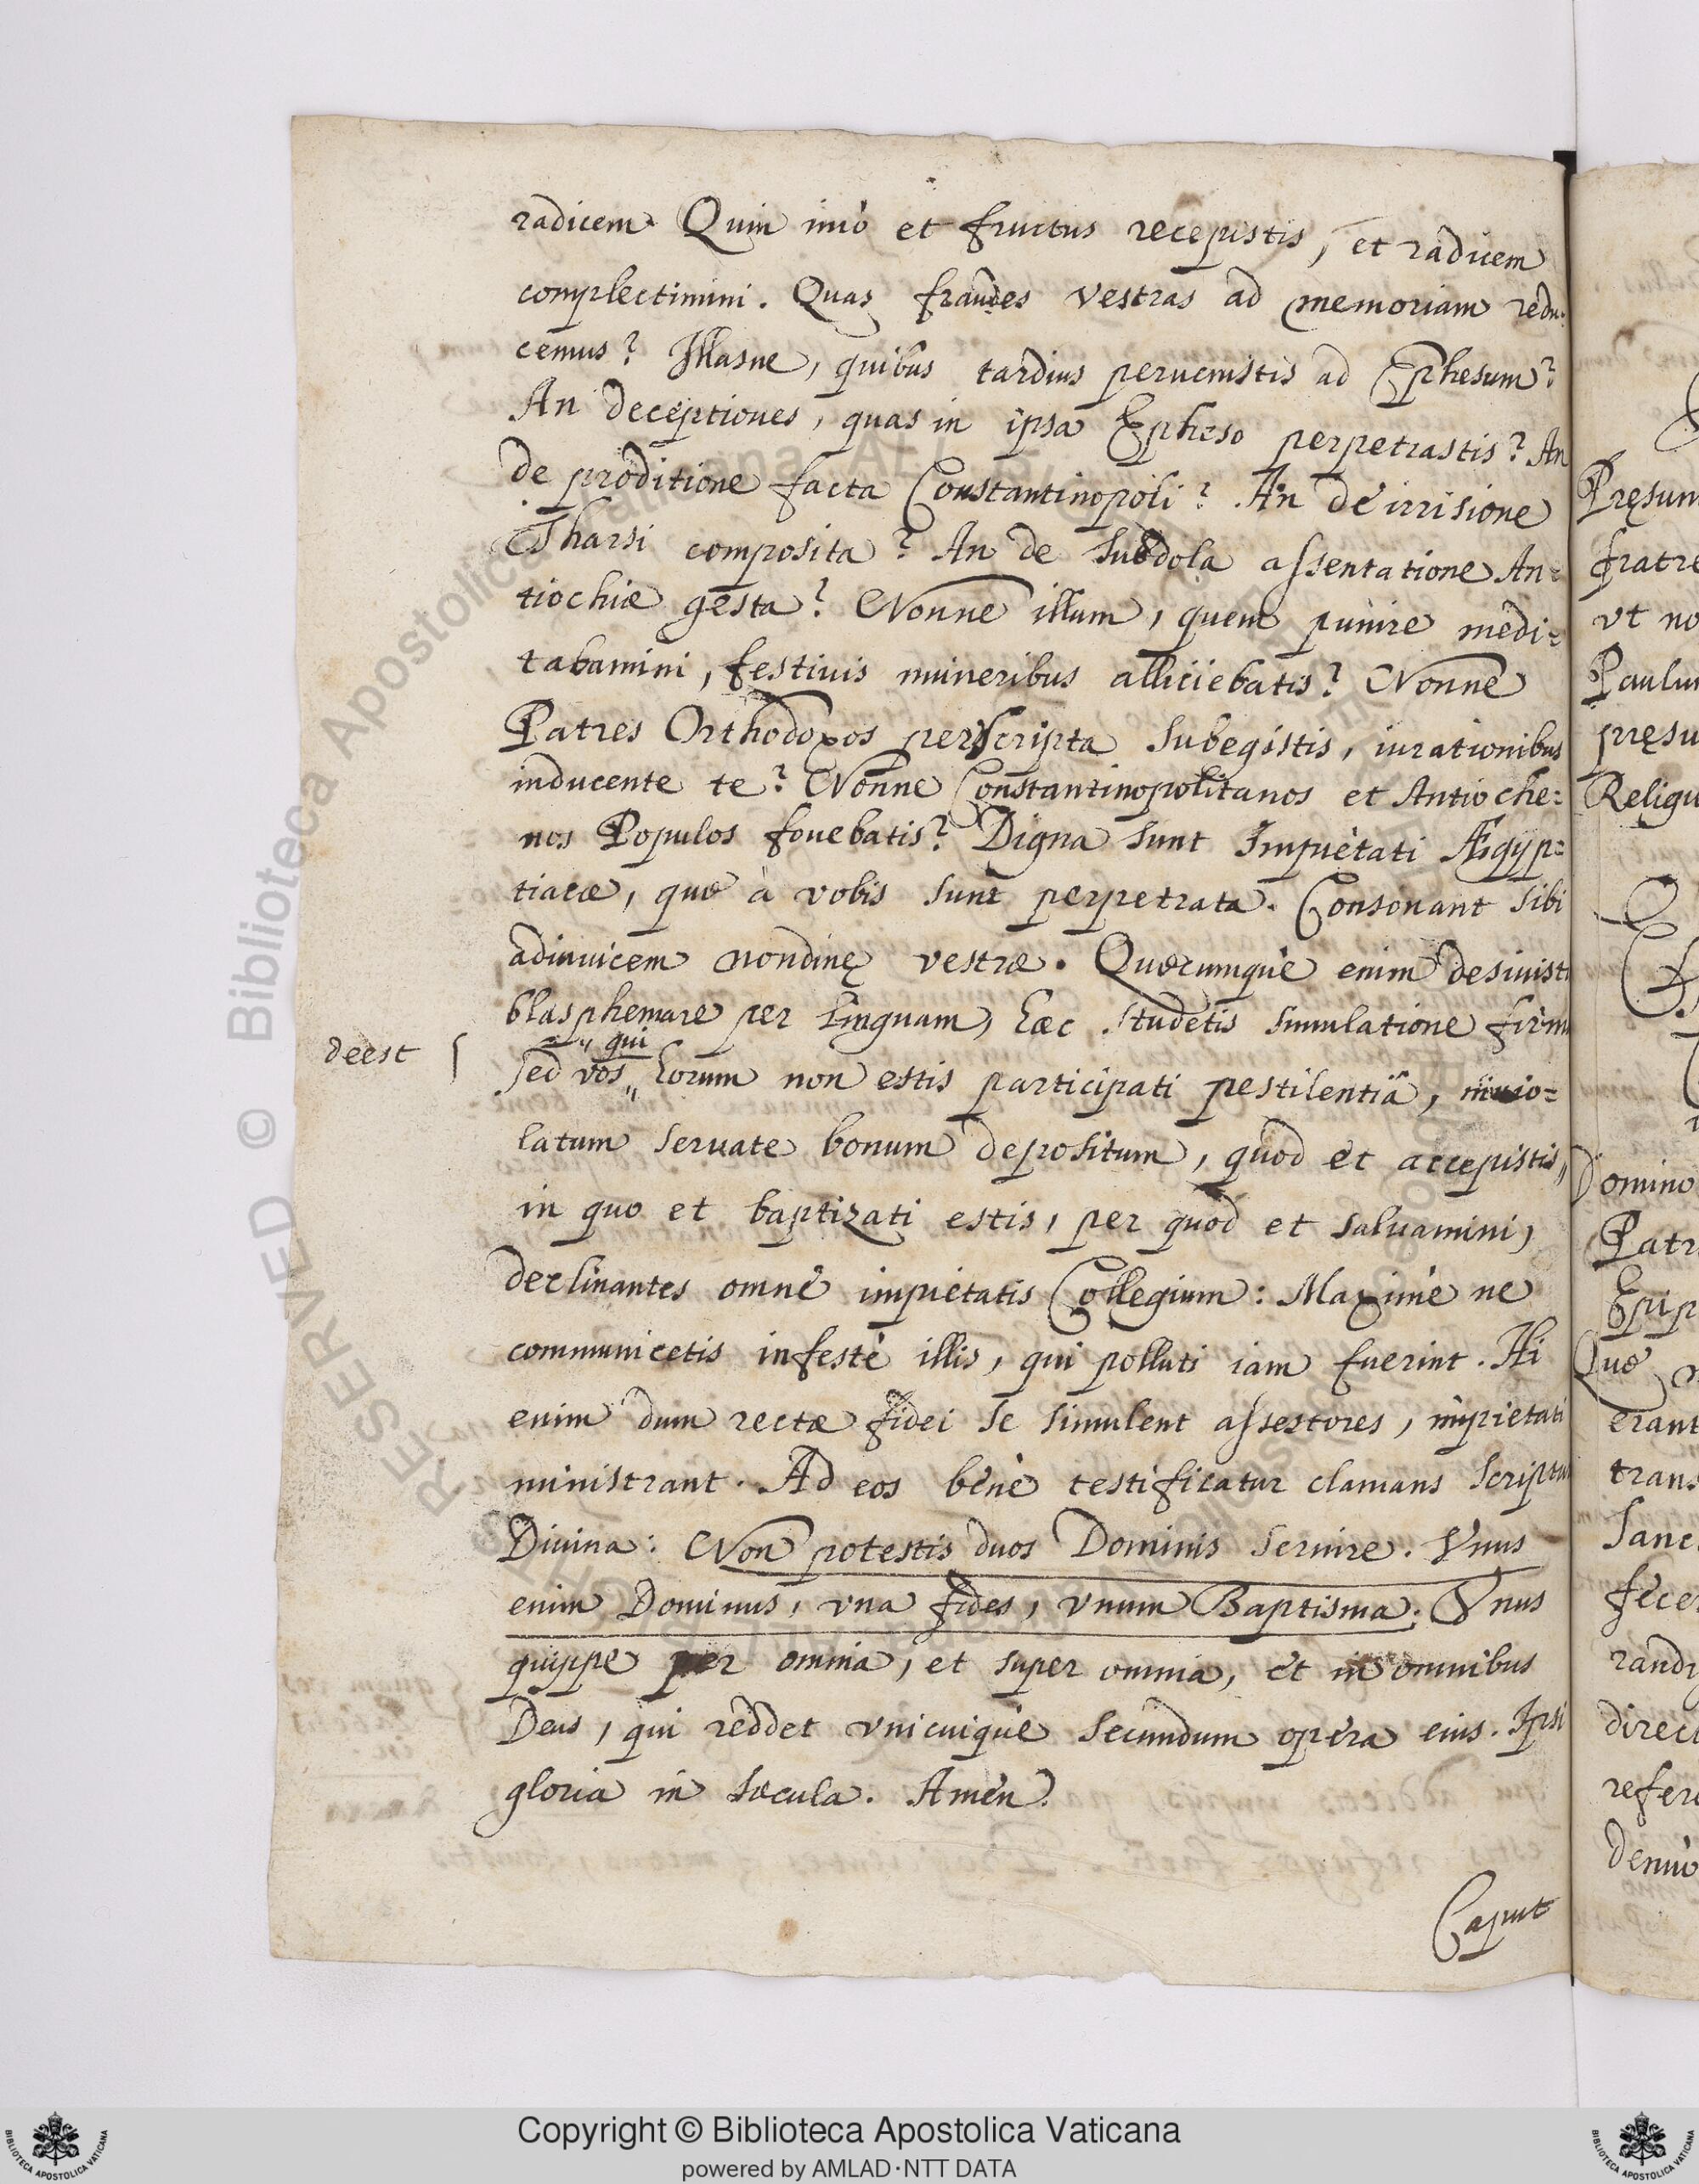 radicem Quin imò et fructus recepistis, et radicem
complectimini. Quas fraudes vestras ad memoriam redu-
cemus? Illasne, quibus tardius peruenistis ad Ephesum?
An deceptiones, quas in ipsa Epheso perpetrastis? An
de proditione facta Constantinopoli? An de irrisione
Tharsi composita? An de subdola assentatione An=
tiochiæ gesta? Nonne illum, quem punire medi=
tabamini, festiuis muneribus alliciebatis? Nonne
Patres Orthodoxos perscripta subegistis, iurationibus
inducente te? Nonne Constantinopolitanos et Antioche=
nos Populos fouebatis? Digna sunt Impietati Ægyp=
tiacæ, quæ à vobis sunt perpetrata. Consonant sibi
adinuicem nondinę vestræ. Quæcumque enim desiuisti
blasphemare per linguam, hæc studetis simulatione firm
deest
qui
sed vos,, horum non estis participati pestilentiâ, inuio=
latum seruate bonum depositum, quod et accepistis,,
in quo et baptizati estis, per quod et saluamini,
declinantes omne impietatis Collegium: Maximè ne
communicetis infestè illis, qui polluti iam fuerint. Hi
enim dum rectæ fidei se simulent assestores, impietati
ministrant. Ad eos bene testificatur clamans scriptu
Diuina: Non potestis duos Dominis seruire. Vnus
enim Dominus, vna fides, vnum Baptisma. Vnus
quippe per omnia, et super omnia, et in omnibus
Deus, qui reddet vnicuique secundum opera eius. Ipsi
gloria in sæcula. Amen.
Caput
Pręsum
fratre
vt no
Paulum
pręsu
Religi
Domino
Patr
Epip
Quæ
erant
trans
Sanc
fece
rand
direc
refer
denuò
© Biblioteca Apostolica Vaticana ALL RIGHTS RESERVED
Copyright © Biblioteca Apostolica Vaticana
powered by AMLAD·NTT DATA
BIBLIOTECA APOSTOLICA VATICANA
BIBLIOTECA APOSTOLICA VATICANA